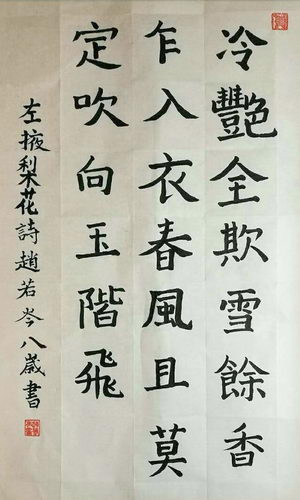 冷艷全欺雪餘香
乍入衣春風且莫
定吹向玉階飛
左掖梨花詩趙若岑八歲書